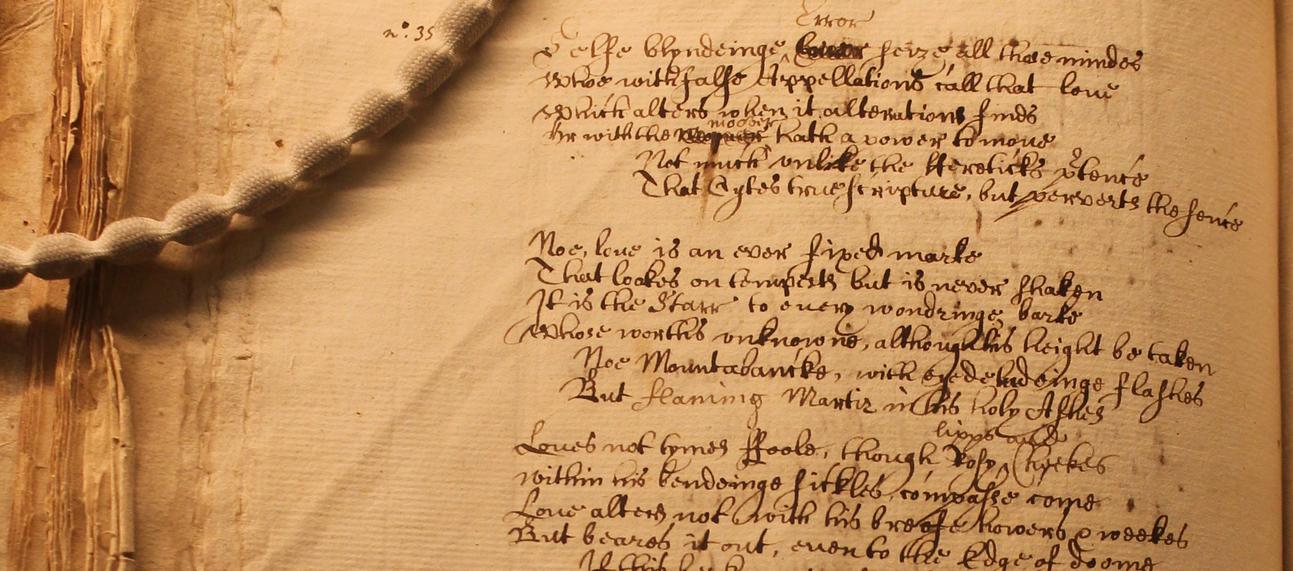 Error
n°. 35
Selfe blyndeinge seize all those mindes
Whoe with false Appellations call that love
Which alters when it alterations finds
Or with the mover hath a power to move
Not much unlike the Hereticks ptence
That Cytes true scripture, but perverts the sence
Noe, love is an ever fixed marke
That lookes on tempests but is never shaken
It is the Starr to every wondringe barke
Whose worths unknowne, although his height be taken
Noe Mountabancke, with eyedeludeinge flashes
But flaming Martir in his holy Ashes
lipps and
Loves not tymes ffoole, though Rosy Cheekes
within his bendeinge sickles compasse come
Love alters not with his breefe howers & weekes
But beares it out, even to the Edge of doome
If this be